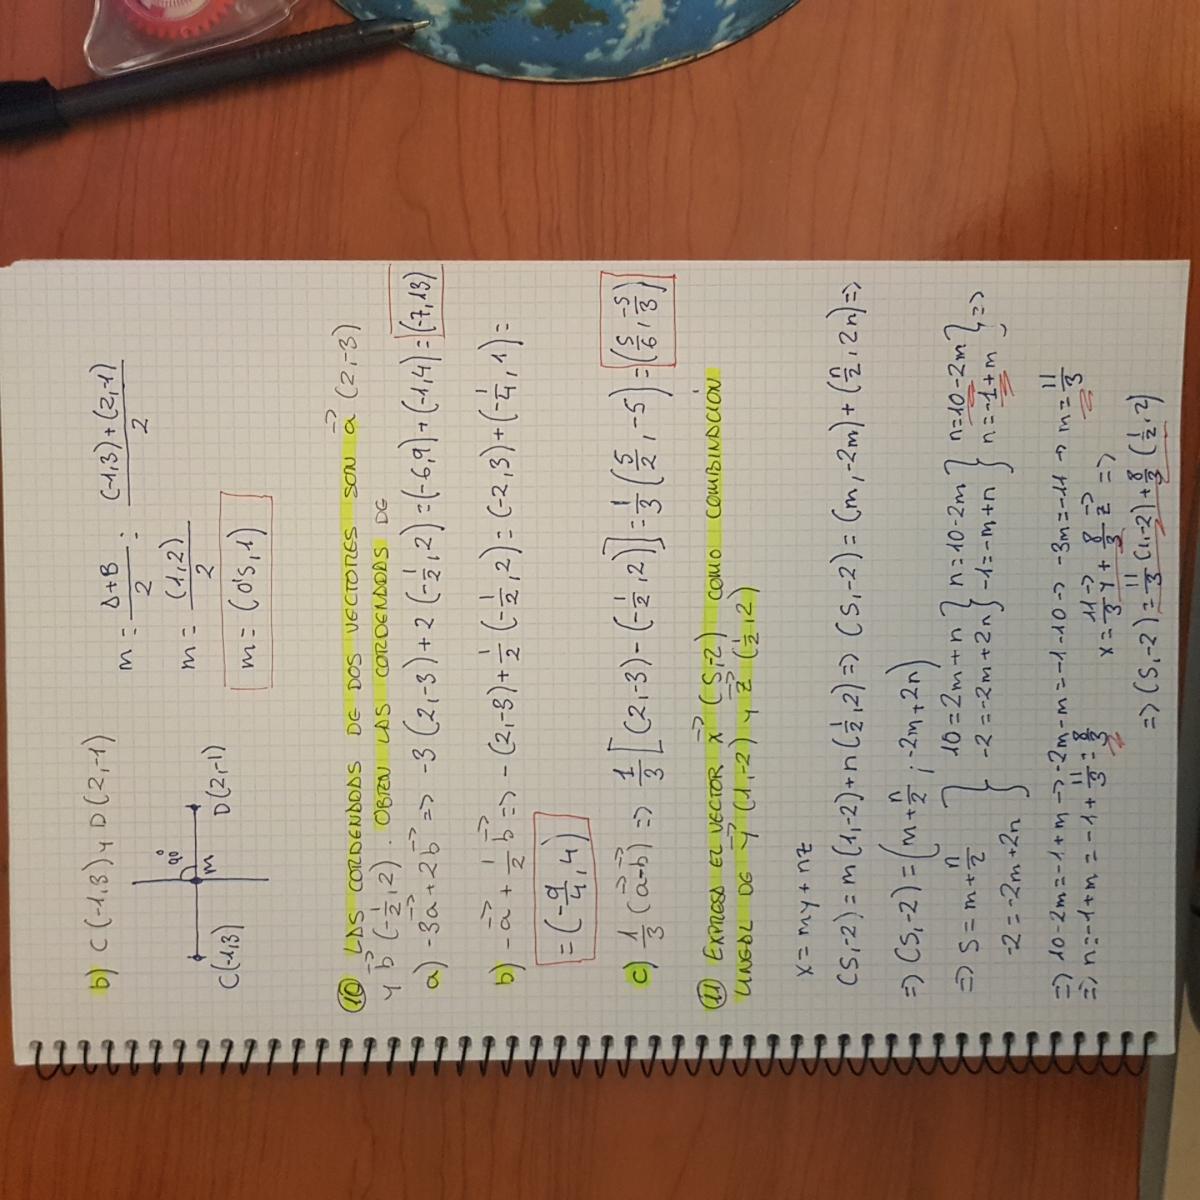 b) C(-1,3) y D(2,-1)
m = A+B/2 = (-1,3)+(2,-1)/2
m = (1,2)/2
m = (0'5,1)
90°
m
C(-1,3) D(2,-1)
10 LAS CORDENADAS DE DOS VECTORES SON a⃗ (2,-3)
y b⃗ (-1/2,2). OBTEN LAS CORDENADAS DE
a) -3a⃗+2b⃗ => -3(2,-3)+2(-1/2,2)=(-6,9)+(-1,4)=(-7,13)
b) -a⃗+1/2b⃗ => -(2,-3)+1/2(-1/2,2)=(-2,3)+(-1/4,1)=
=(-9/4,4)
c) 1/3(a⃗-b⃗) => 1/3[(2,-3)-(-1/2,2)]=1/3(5/2,-5)=(5/6,-5/3)
11 EXPRESA EL VECTOR x⃗ (5,-2) COMO COMBINACIÓN
LINEAL DE y⃗ (1,-2) y z⃗ (1/2,2)
x = my + nz
(5,-2)=m(1,-2)+n(1/2,2)=>(5,-2)=(m,-2m)+(n/2,2n)=>
=>(5,-2)=(m+n/2,-2m+2n)
=> 5=m+n/2 } 10=2m+n } n=10-2m } n=10-2m } =>
-2=-2m+2n } -2=-2m+2n } -1=-m+n } n=-1+m }
=> 10-2m=-1+m -> -2m-m=-1-10 -> -3m=-11 -> m=11/3
=> n=-1+m=-1+11/3=8/3 x⃗=11/3y⃗+8/3z⃗ =>
=>(5,-2)=11/3(1,-2)+8/3(1/2,2)